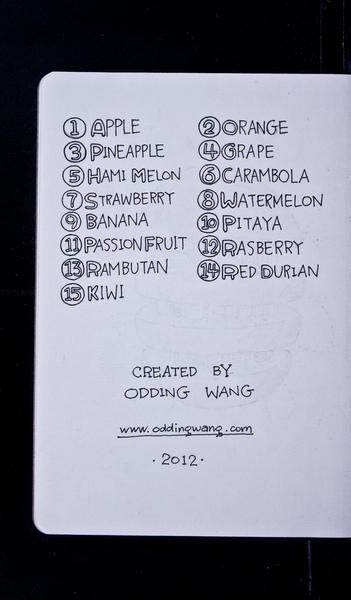 ① APPLE ② ORANGE
③ PINEAPPLE ④ GRAPE
⑤ HAMI MELON ⑥ CARAMBOLA
⑦ STRAWBERRY ⑧ WATERMELON
⑨ BANANA ⑩ PITAYA
⑪ PASSION FRUIT ⑫ RASBERRY
⑬ RAMBUTAN ⑭ RED DURIAN
⑮ KIWI
CREATED BY
ODDING WANG
www.oddingwang.com
·2012·